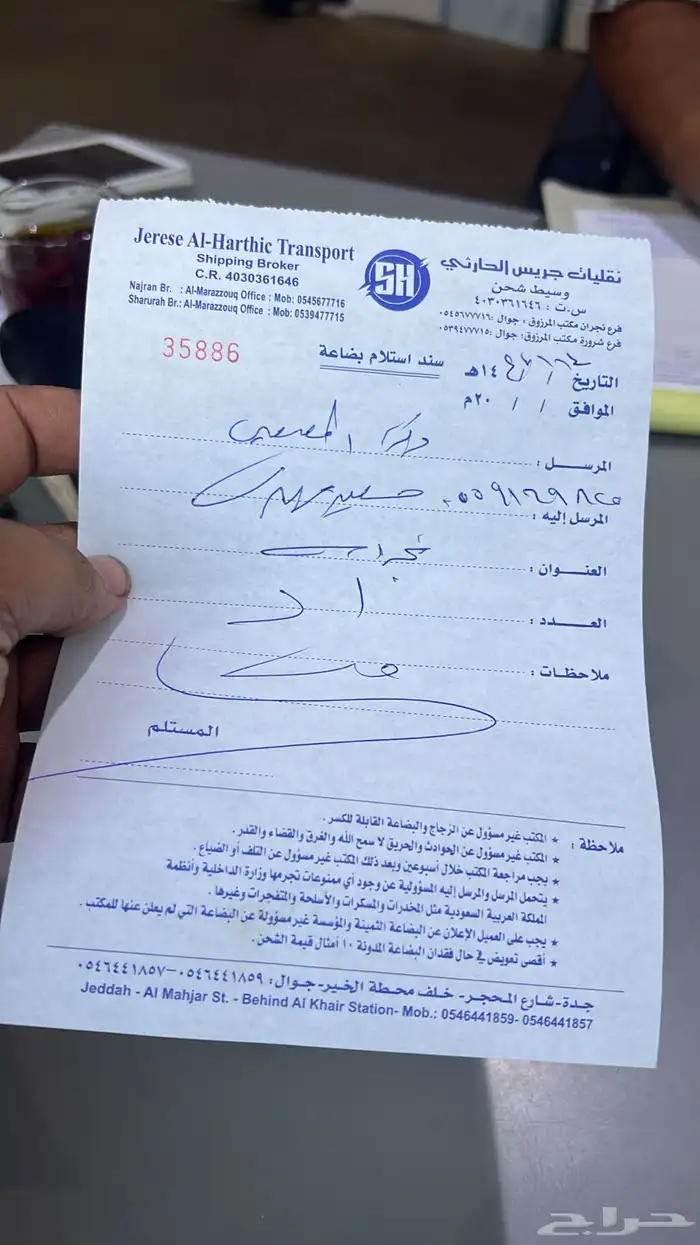 Jerese Al-Harthic Transport
Shipping Broker
C.R. 4030361646
Najran Br. : Al-Marazzouq Office : Mob: 0545677716
Sharurah Br.: Al-Marazzouq Office : Mob: 0539477715
SH
نقليات جريس الحارثي
وسيط شحن
س.ت : ٤٠٣٠٣٦١٦٤٦
فرع نجران مكتب المرزوق ، جوال : ٠٥٤٥٦٧٧٧١٦
فرع شرورة مكتب المرزوق: جوال :٠٥٣٩٤٧٧٧١٥
35886
سند استلام بضاعة
التاريخ / / ١٤هـ
الموافق / / ٢٠م
المرسل :
المرسل إليه : ٠٥٥٩١٢٩٨٢٥
العنوان : نجران
العدد : ١
ملاحظات :
المستلم
ملاحظة :
* المكتب غير مسؤول عن الزجاج والبضاعة القابلة للكسر .
* المكتب غير مسؤول عن الحوادث والحريق لا سمح الله والغرق والقضاء والقدر.
* يجب مراجعة المكتب خلال أسبوعين وبعد ذلك المكتب غير مسؤول عن التلف أو الضياع .
* يتحمل المرسل والمرسل إليه المسؤولية عن وجود أي ممنوعات تجرمها وزارة الداخلية وأنظمة
المملكة العربية السعودية مثل المخدرات والمسكرات والأسلحة والمتفجرات وغيرها .
* يجب على العميل الإعلان عن البضاعة الثمينة والمؤسسة غير مسؤولة عن البضاعة التي لم يعلن عنها للمكتب .
* أقصى تعويض في حال فقدان البضاعة المدونة ١٠ أمثال قيمة الشحن .
جدة-شارع المحجر- خلف محطة الخير-جوال: ٠٥٤٦٤٤١٨٥٩-٠٥٤٦٤٤١٨٥٧
Jeddah - Al Mahjar St. - Behind Al Khair Station- Mob.: 0546441859- 0546441857
حراج